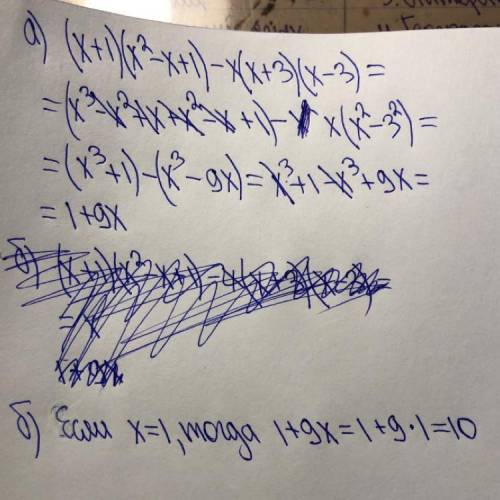 а) (x+1)(x²-x+1)-x(x+3)(x-3)=
=(x³-x²+x+x²-x+1)- x(x²-3²)=
=(x³+1)-(x³-9x)=x³+1-x³+9x=
=1+9x
б) Если x=1, тогда 1+9x=1+9·1=10